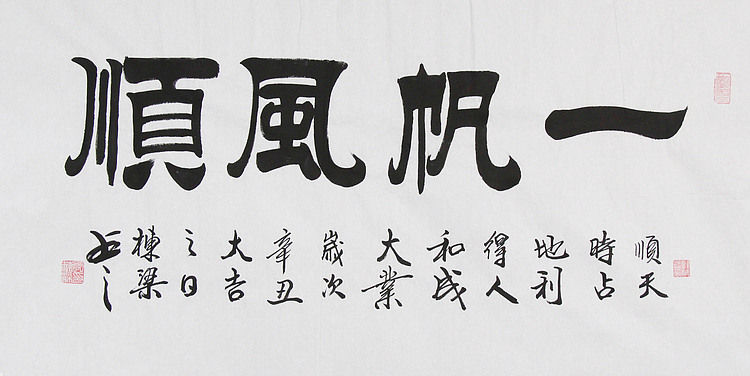 一帆風順
順天
時占
地利
得人
和成
大業
歲次
辛丑
大吉
之日
棟梁